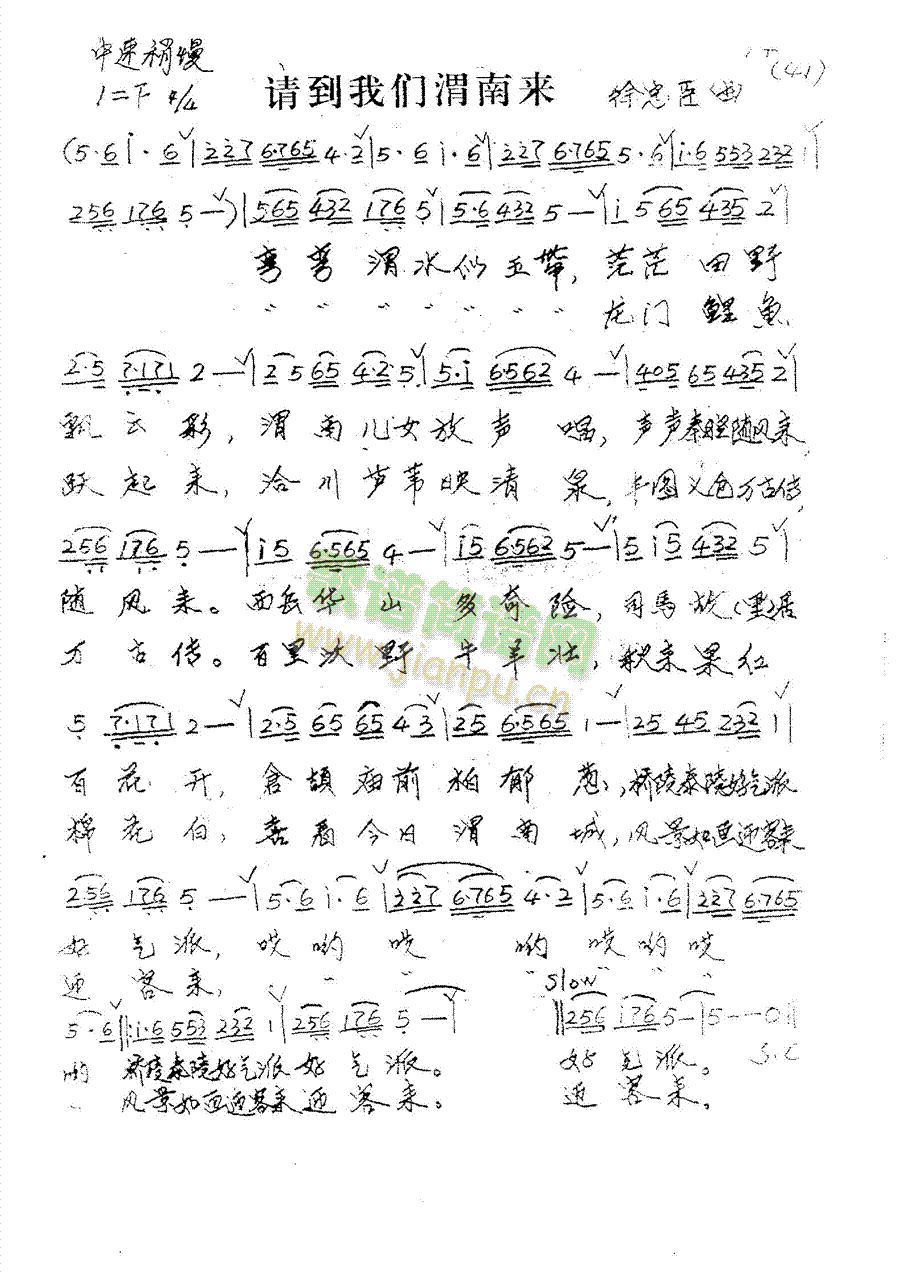 中速稍慢
1=F 4/4 请到我们渭南来 徐忠臣(曲) (41)
(5·6 i·6 | 227 6·765 4·2 | 5·6 i·6 | 227 6·765 5·6 | i·6 553 232 1 |
256 176 5 — ) | 565 432 176 5 | 5·6 432 5 — | i 565 435 2 |
弯弯渭水似玉带, 茫茫田野
" " " " " " " 龙门鲤鱼
2·5 7·171 2 — | 2 5 65 4·2 5 | 5·i 6·562 4 — | 405 65 435 2 |
飘云彩, 渭南儿女放声唱, 声声秦腔随风来
跃起来, 洽川芦苇映清泉, 丰图义仓万古传,
256 176 5 — | i5 6·565 4 — | i5 6·562 5 — | 5 i5 432 5 |
随风来。西岳华山多奇险, 司馬故(里)居
万古传。百里沃野牛羊壮, 秋来果红
5 7·171 2 — | 2·5 65 65 43 | 25 6·565 1 — | 25 45 232 1 |
百花开, 仓颉庙前柏郁葱, 桥陵泰陵好气派
棉花白, 喜看今日渭南城, 风景如画迎客来
256 176 5 — | 5·6 i·6 | 227 6·765 4·2 | 5·6 i·6 | 227 6·765
好气派, 哎哟哎 哟哎哟哎
迎客来, " " " " " "
Slow
5·6 ‖: i·6 553 232 1 | 256 176 5 — | ‖ 256 176 5 — | 5 — — 0 ‖
哟 桥陵泰陵好气派好气派。 好气派。 S.C
" 风景如画迎客来迎客来。 迎客来。
歌谱简谱网
www.jianpu.cn